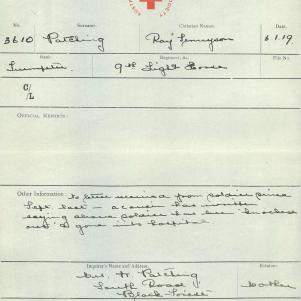 No. Surname. Christian Names. Date.
3610 Patching Ray Tennyson 6.1.19.
Rank. Regiment, &c. File No.
Trumpeter 9th Light Horse
C/L
OFFICIAL REPORTS:
Other Information: No letter received from soldier since
Sept. last - a cousin has written
saying above soldier has been "knocked
out" & gone into hospital
Inquirer's Name and Address. Relation.
Mrs. H. Patching mother
South Road,
Black Forest